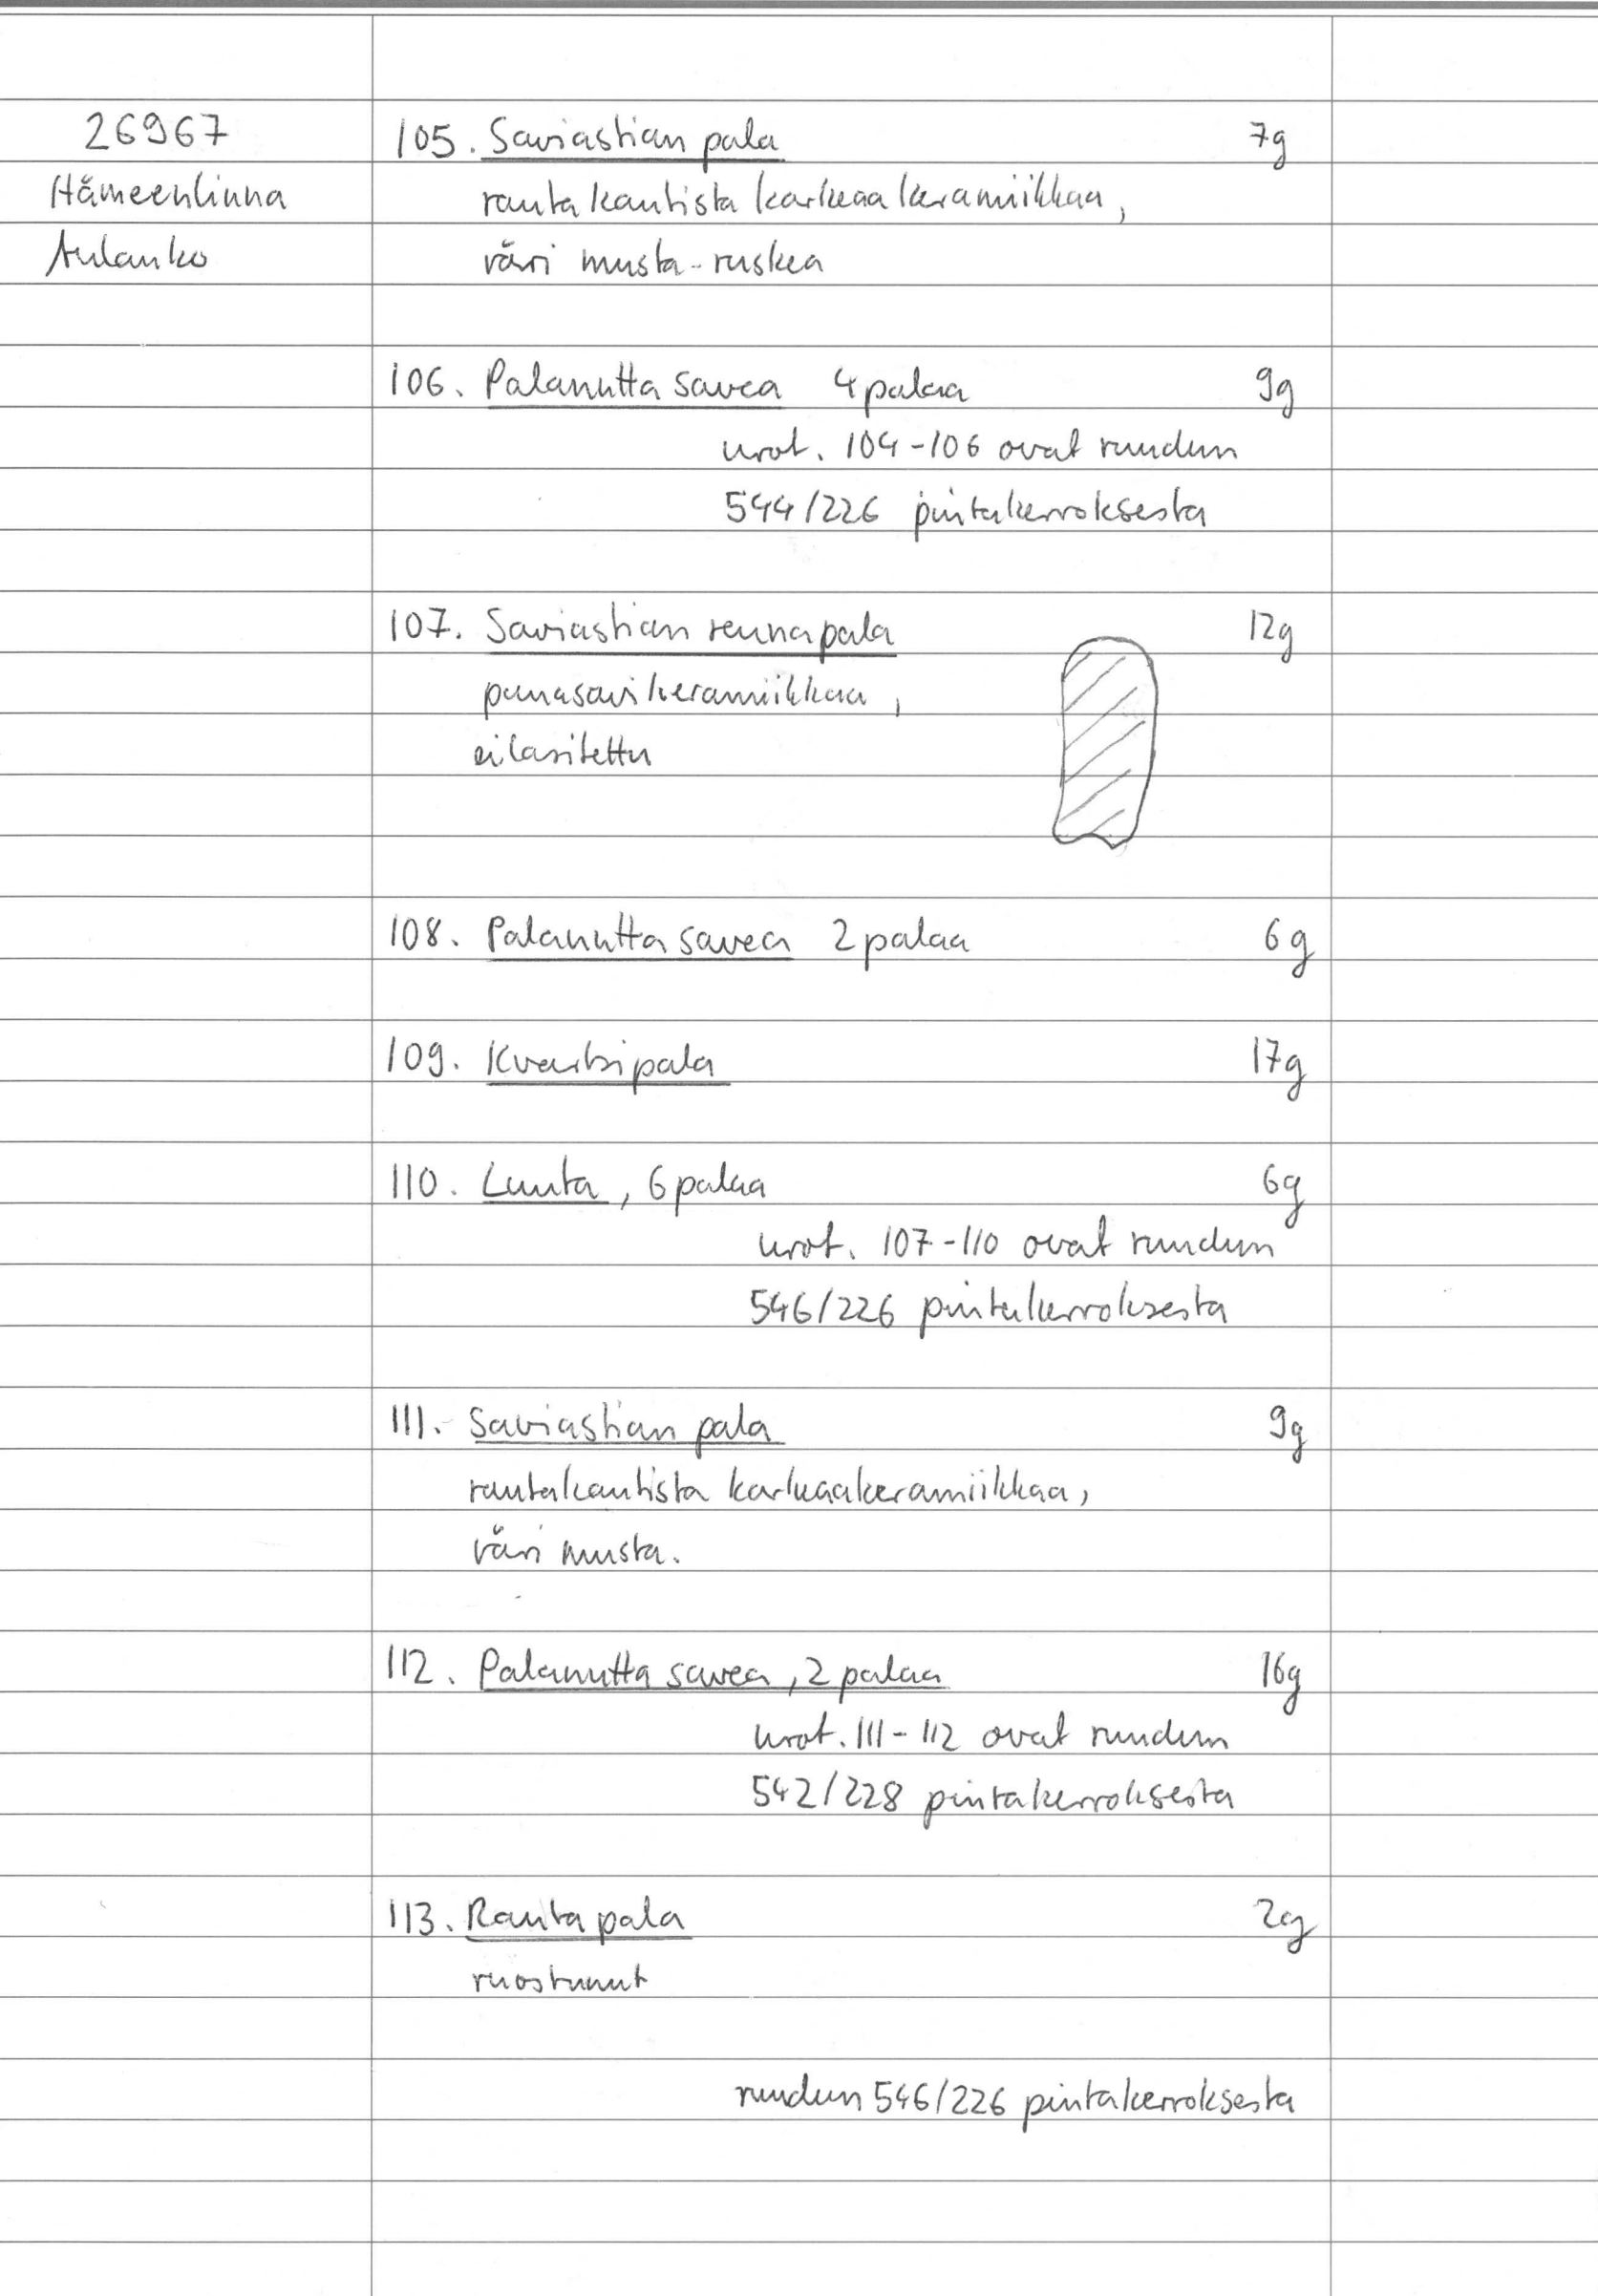 26967
Hämeenlinna
Aulanko
105. Saviastian pala 7g
rautakautista karkeaa keramiikkaa,
väri musta-ruskea
106. Palanutta savea 4 palaa 9g
nrot. 104-106 ovat ruudun
544/226 pintakerroksesta
107. Saviastian reunapala 12g
punasavikeramiikkaa,
ei lasitettu
108. Palanutta savea 2 palaa 6g
109. Kvartsipala 17g
110. Luuta, 6 palaa 6g
nrot. 107-110 ovat ruudun
546/226 pintakerroksesta
111. Saviastian pala 9g
rautakautista karkeaa keramiikkaa,
väri musta.
112. Palanutta savea, 2 palaa 16g
nrot. 111-112 ovat ruudun
542/228 pintakerroksesta
113. Rautapala 2g
ruostunut
ruudun 546/226 pintakerroksesta